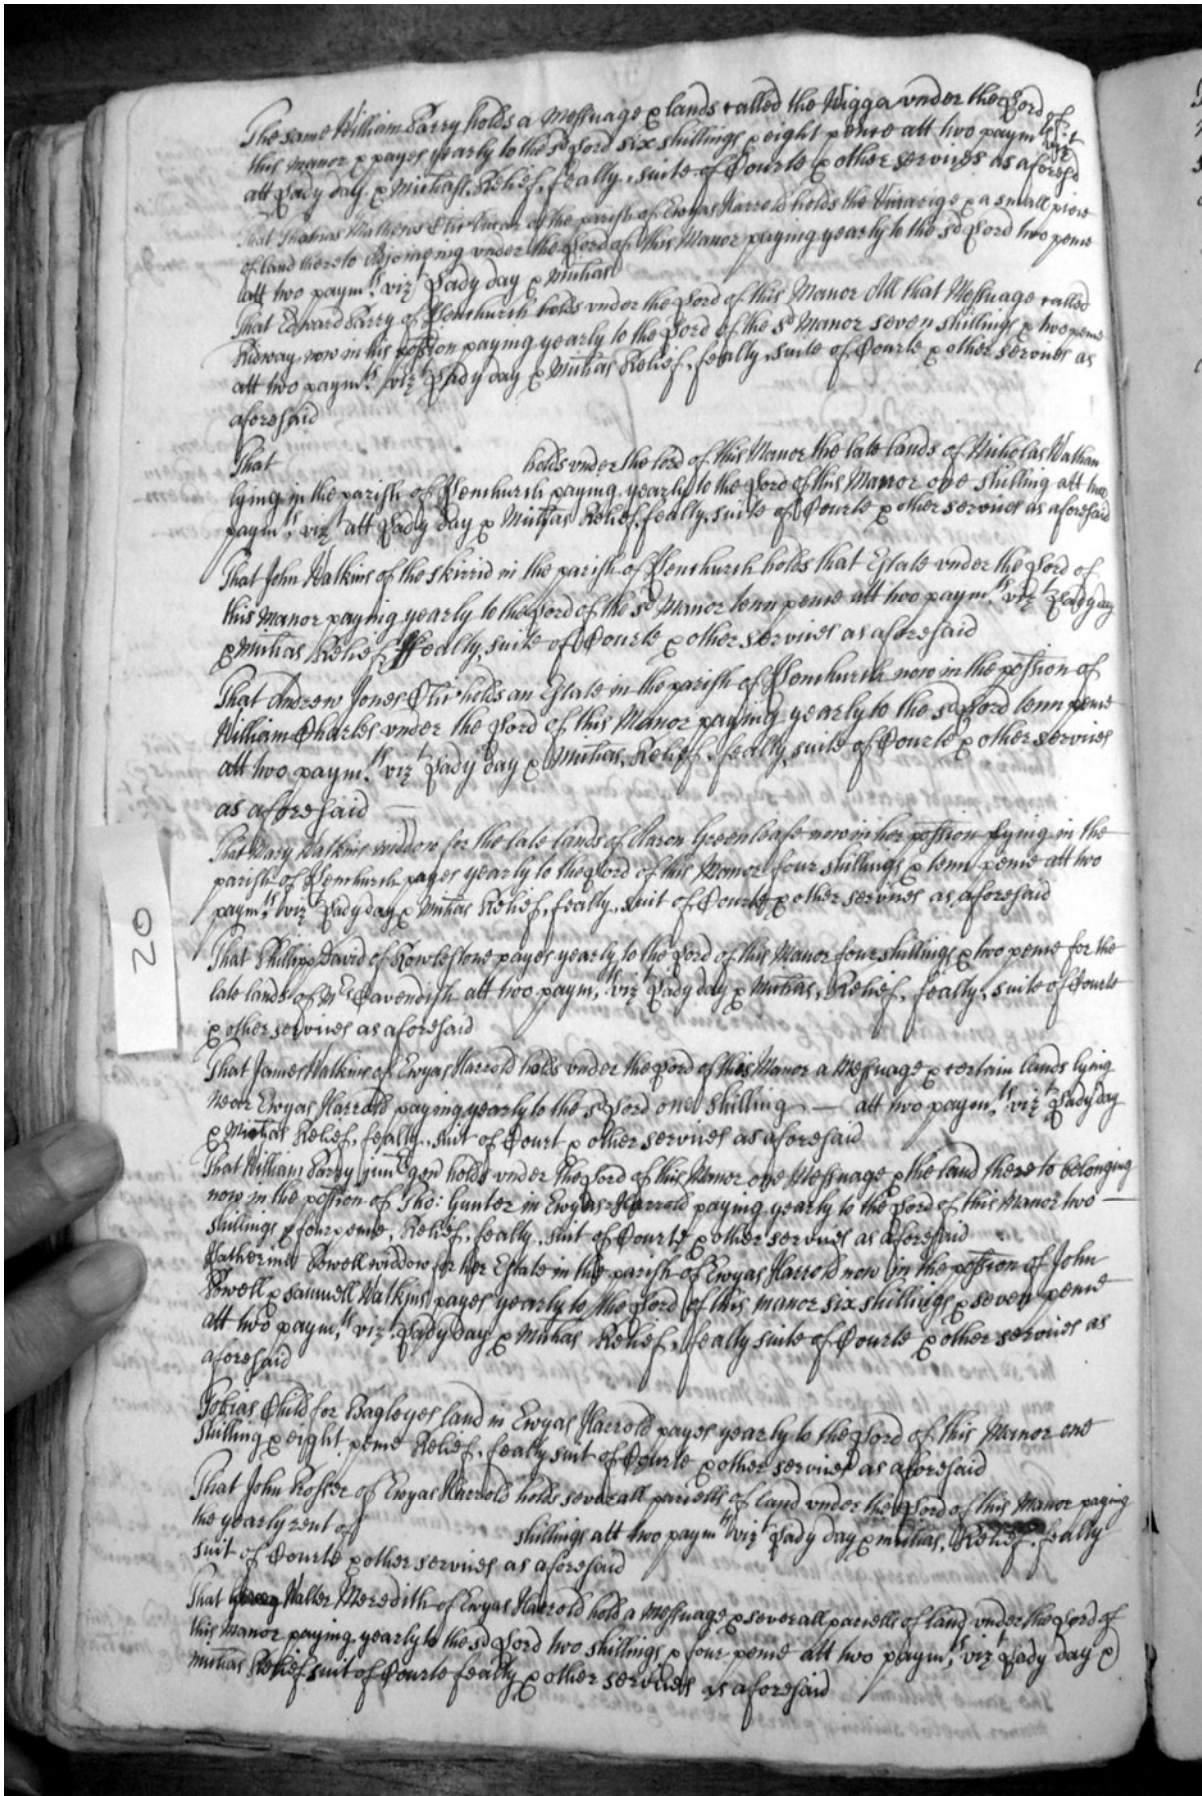 The same William Parry holds a Messuage & lands called the Wigga under the Lord of
this manor & payes yearly to the sd Lord six shillings & eight pence att two paymts: vizt
att Lady day & Michaſt. Relief, fealty, suite of Courte & other services as aforesd
That Thomas Mathews Cler Vicar of the parish of Ewyas Harrold holds the Vicarige & a small piece
of land thereto Adjoineing under the Lord of this Manor paying yearly to the sd Lord two pence
att two paymts: vizt Lady day & Michas
That Edward Parry of Kenchurch holds under the Lord of this Manor All that Messuage called
Kidway now in his possion paying yearly to the Lord of the sd Manor seven shillings & two pence
att two paymts: vizt Lady day & Michas Relief, fealty, suite of Courte & other services as
aforesaid
That holds under the lord of this Manor the late lands of Nicholas Wathan
lying in the parish of Kenchurch paying yearly to the Lord of this Manor one shilling att two
paymts, vizt att Lady day & Michas Relief, fealty, suite of Courte & other services as aforesaid
That John Watkins of the skirrid in the parish of Kenchurch holds that Estate under the Lord of
this Manor paying yearly to the Lord of the sd Manor tenn pence att two paymts: vizt Lady day
& Michas Relief, ffealty, suite of Courte & other services as aforesaid
That Andrew Jones Cler holds an Estate in the parish of Kenchurch now in the possion of
William Charles under the Lord of this Manor paying yearly to the sd Lord tenn pence
att two paymts: vizt Lady day & Michas, Relief, fealty, suite of Courte & other services
as aforesaid —
That Mary Watkins widdow for the late lands of Aaron Greenleafe now in her possion lying in the
parish of Kenchurch payes yearly to the Lord of this Manor four shillings & tenn pence att two
paymts, vizt Lady day & Michas Relief, fealty, suit of Courte & other services as aforesaid
That Phillip David of Rowlestone payes yearly to the Lord of this Manor four shillings & two pence for the
late lands of Mrs Cavendish att two paymts, vizt Lady day & Michas, Relief, fealty, suite of Courte
& other services as aforesaid
That James Watkins of Ewyas Harrold holds under the Lord of this Manor a Messuage & certain lands lying
near Ewyas Harrold paying yearly to the sd Lord one shilling — att two paymts: vizt Lady day
& Michas Relief, fealty, suit of Court & other services as aforesaid
That William Parry junr gen holds under the Lord of this Manor one Messuage & the land there to belonging
now in the possion of Tho: Gunter in Ewyas Harrold paying yearly to the Lord of this Manor two —
shillings & four pence, Relief, fealty, suit of Courte & other services as aforesaid
Katherine Powell widdow for her Estate in the parish of Ewyas Harrold now in the possion of John
Powell & Samuell Watkins payes yearly to the Lord of this manor six shillings & seven pence
att two paymts, vizt Lady day & Michas Relief, fealty suite of Courte & other services as
aforesaid
Tobias Child for Bagleyes land in Ewyas Harrold payes yearly to the Lord of this Manor one
shilling & eight pence Relief, fealty suit of Courte & other services as aforesaid
That John Rosser of Ewyas Harrold holds severall parcells of land under the Lord of this Manor paying
the yearly rent of shillings att two paymts vizt Lady day & michas, Relief, fealty
suit of Courte & other services as aforesaid
That Walter Meredith of Ewyas Harrold hold a Messuage & severall parcells of land under the Lord of
this Manor paying yearly to the sd Lord two shillings & four pence att two paymts, vizt Lady day &
michas Relief suit of Courte fealty & other services as aforesaid
20